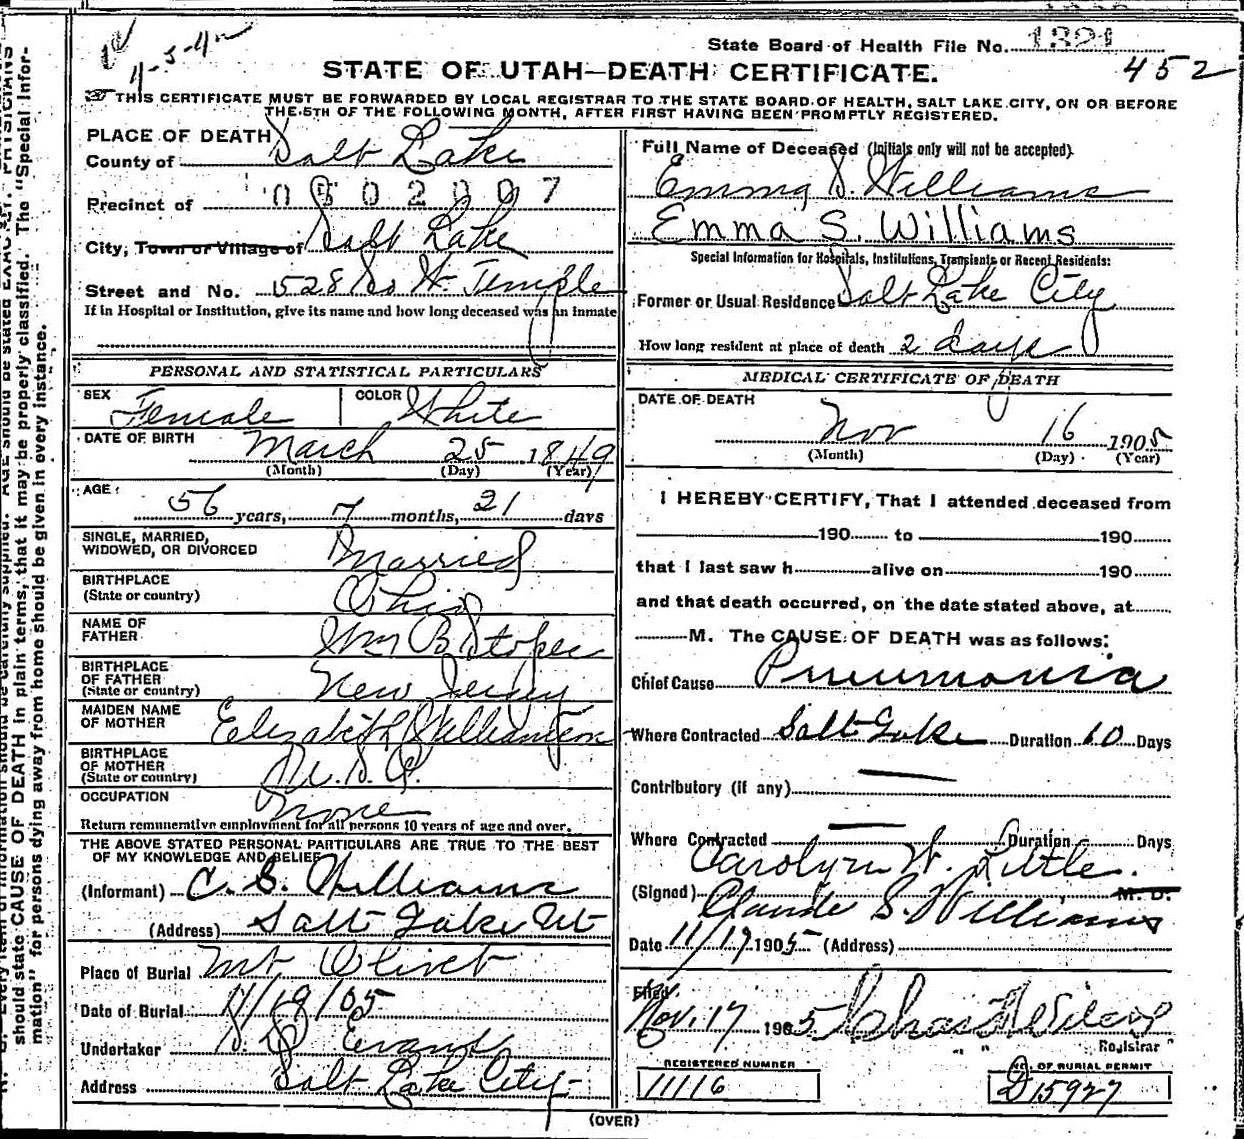 State Board of Health File No. 1321
11-3-4
452
STATE OF UTAH—DEATH CERTIFICATE.
THIS CERTIFICATE MUST BE FORWARDED BY LOCAL REGISTRAR TO THE STATE BOARD OF HEALTH, SALT LAKE CITY, ON OR BEFORE
THE 5TH OF THE FOLLOWING MONTH, AFTER FIRST HAVING BEEN PROMPTLY REGISTERED.
PLACE OF DEATH
County of Salt Lake
Precinct of 0502007
City, Town or Village of Salt Lake
Street and No. 528 So W. Temple
If in Hospital or Institution, give its name and how long deceased was an inmate
PERSONAL AND STATISTICAL PARTICULARS
SEX Female COLOR White
DATE OF BIRTH March 25 1849
(Month) (Day) (Year)
AGE 56 years, 7 months, 21 days
SINGLE, MARRIED,
WIDOWED, OR DIVORCED Married
BIRTHPLACE
(State or country) Ohio
NAME OF
FATHER Wm B Stoper
BIRTHPLACE
OF FATHER
(State or country) New Jersey
MAIDEN NAME
OF MOTHER Elizabeth Williamson
BIRTHPLACE
OF MOTHER
(State or country) U.S.A.
OCCUPATION None
Return remunerative employment for all persons 10 years of age and over.
THE ABOVE STATED PERSONAL PARTICULARS ARE TRUE TO THE BEST
OF MY KNOWLEDGE AND BELIEF
(Informant) C. S. Williams
(Address) Salt Lake Ut
Place of Burial Mt Olivet
Date of Burial 11/19/05
Undertaker S. D. Evans
Address Salt Lake City
Full Name of Deceased (Initials only will not be accepted).
Emma S. Williams
Emma S. Williams
Special Information for Hospitals, Institutions, Transients or Recent Residents:
Former or Usual Residence Salt Lake City
How long resident at place of death 2 days
MEDICAL CERTIFICATE OF DEATH
DATE OF DEATH
Nov 16 1905
(Month) (Day) (Year)
I HEREBY CERTIFY, That I attended deceased from
190 to 190
that I last saw h alive on 190
and that death occurred, on the date stated above, at
M. The CAUSE OF DEATH was as follows:
Chief Cause Pneumonia
Where Contracted Salt Lake Duration 10 Days
Contributory (if any)
Where Contracted Duration Days
Carolyn W. Little.
(Signed) Claude S. Williams M. D.
Date 11/17 1905 (Address)
Filed
Nov. 17 1905 Chas Wilcox
Registrar
REGISTERED NUMBER
11116
NO. OF BURIAL PERMIT
D15927
(OVER)
should state CAUSE OF DEATH in plain terms, that it may be properly classified. The "Special Infor-
mation" for persons dying away from home should be given in every instance.